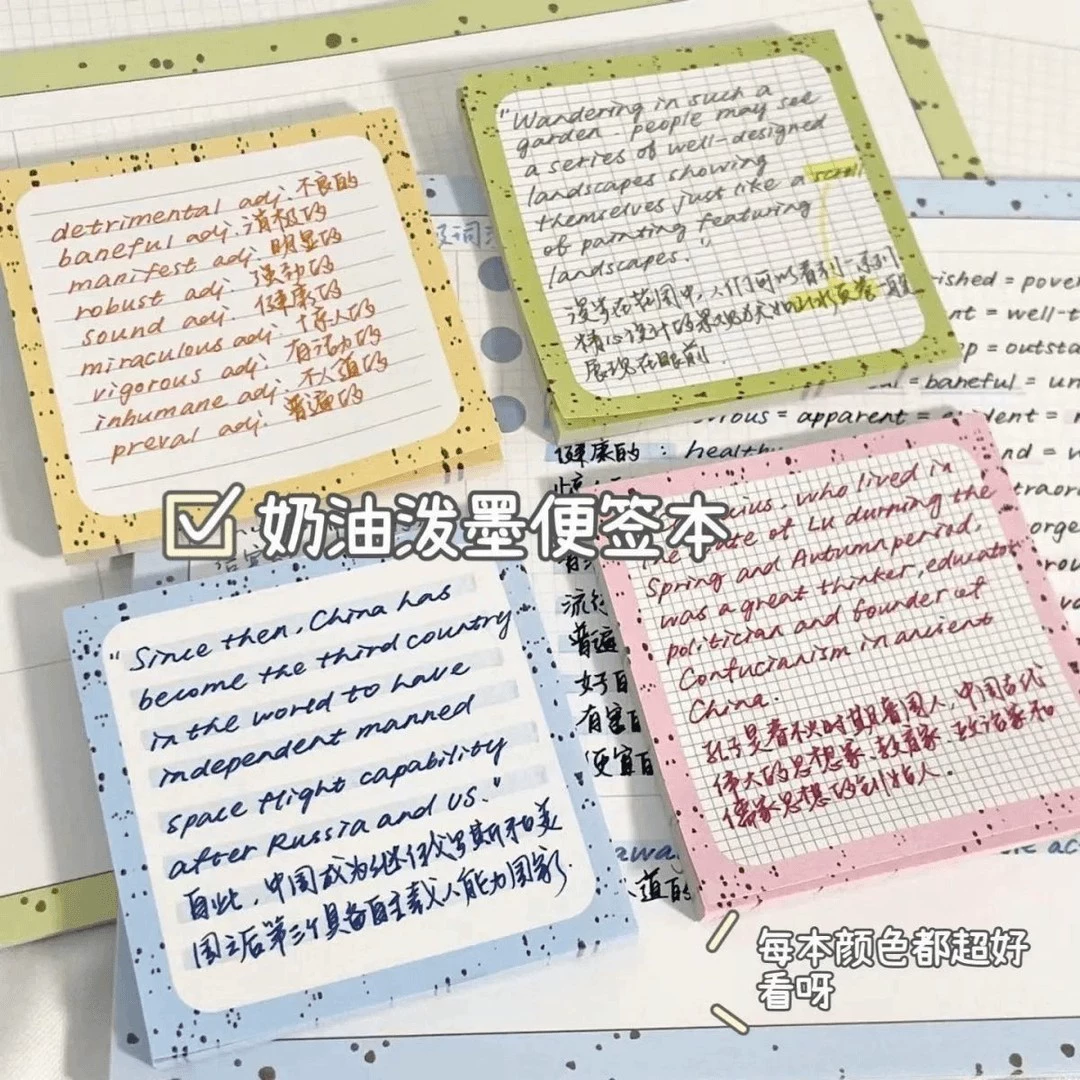 detrimental adj. 不良的
baneful adj. 消极的
manifest adj. 明显的
robust adj. 强劲的
sound adj. 健康的
miraculous adj. 惊人的
vigorous adj. 有活力的
inhumane adj. 不人道的
preval adj. 普遍的
"Wandering in such a
garden people may see
a series of well-designed
landscapes showing
themselves just like a scroll
of painting featuring
landscapes."
漫步在花园中,人们可以看到一系列
精心设计的景观犹如山水画卷一般
展现在眼前.
☑奶油泼墨便签本
"Since then, China has
become the third country
in the world to have
independent manned
space flight capability
after Russia and US."
自此,中国成为继俄罗斯和美
国之后第三个具备自主载人能力国家
cius, who lived in
the state of Lu durning the
Spring and Autumn period,
was a great thinker, educator
politician and founder of
Confucianism in ancient
China.
孔子是春秋时期鲁国人,中国古代
伟大的思想家、教育家、政治家和
儒家思想的创始人.
ished = pover
nt = well-t
p = outsta
al = baneful = un
ious = apparent = evident = 
健康的 : healthy
nd = w
traor
orge
流行
普遍
好
有害
便宜
awa
人道的
每本颜色都超好
看呀